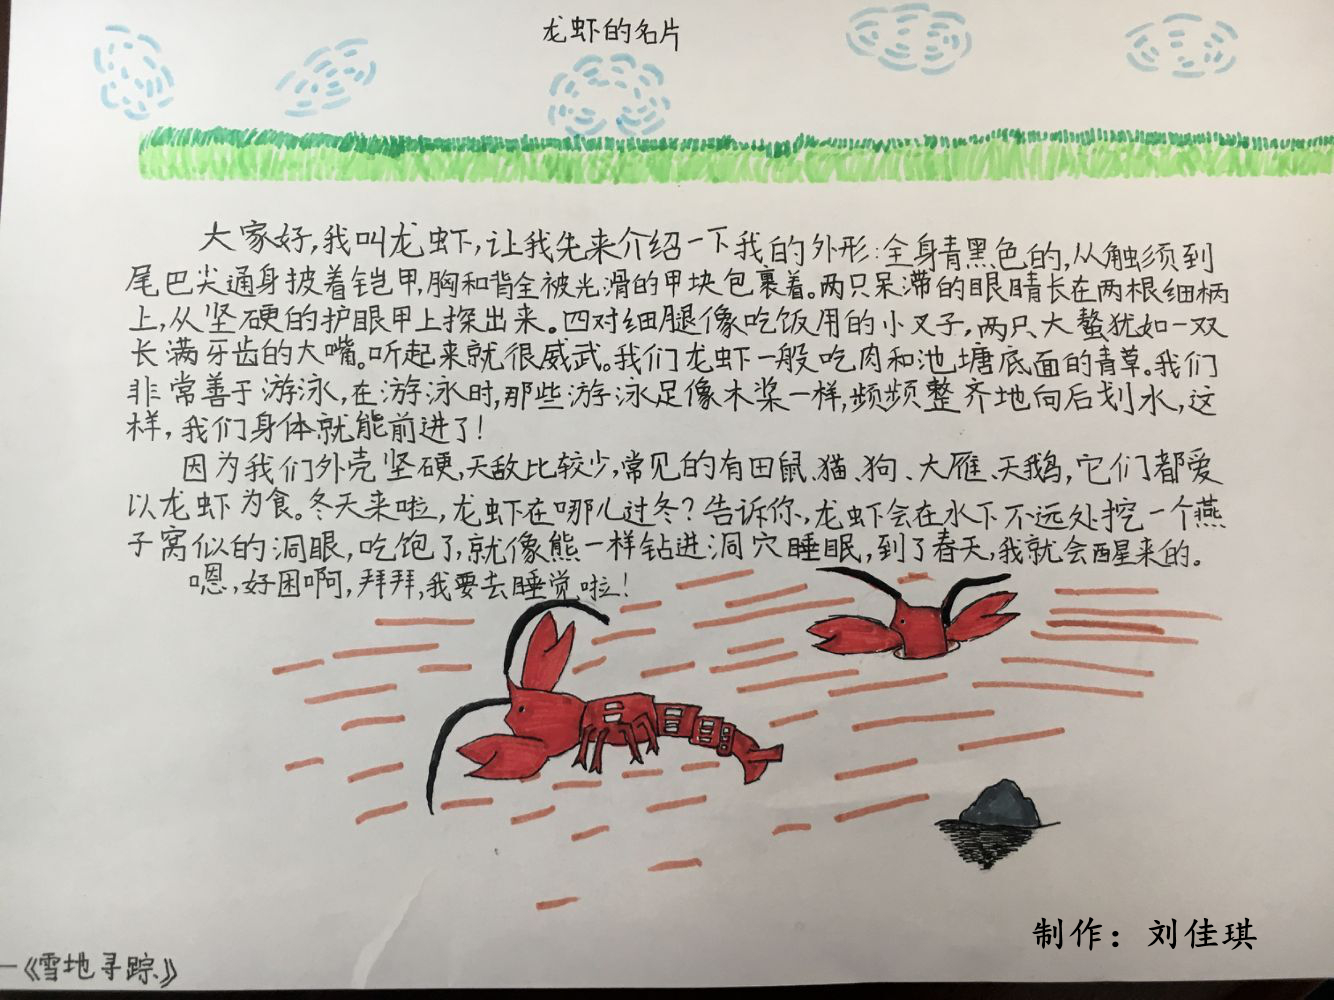 龙虾的名片
大家好,我叫龙虾,让我先来介绍一下我的外形:全身青黑色的,从触须到
尾巴尖通身披着铠甲,胸和背全被光滑的甲块包裹着。两只呆滞的眼睛长在两根细柄
上,从坚硬的护眼甲上探出来。四对细腿像吃饭用的小叉子,两只大螯犹如一双
长满牙齿的大嘴。听起来就很威武。我们龙虾一般吃肉和池塘底面的青草。我们
非常善于游泳,在游泳时,那些游泳足像木桨一样,频频整齐地向后划水,这
样,我们身体就能前进了!
因为我们外壳坚硬,天敌比较少,常见的有田鼠、猫、狗、大雁、天鹅,它们都爱
以龙虾为食。冬天来啦,龙虾在哪儿过冬?告诉你,龙虾会在水下不远处挖一个燕
子窝似的洞眼,吃饱了,就像熊一样钻进洞穴睡眠,到了春天,我就会醒来的。
嗯,好困啊,拜拜,我要去睡觉啦!
制作：刘佳琪
—《雪地寻踪》